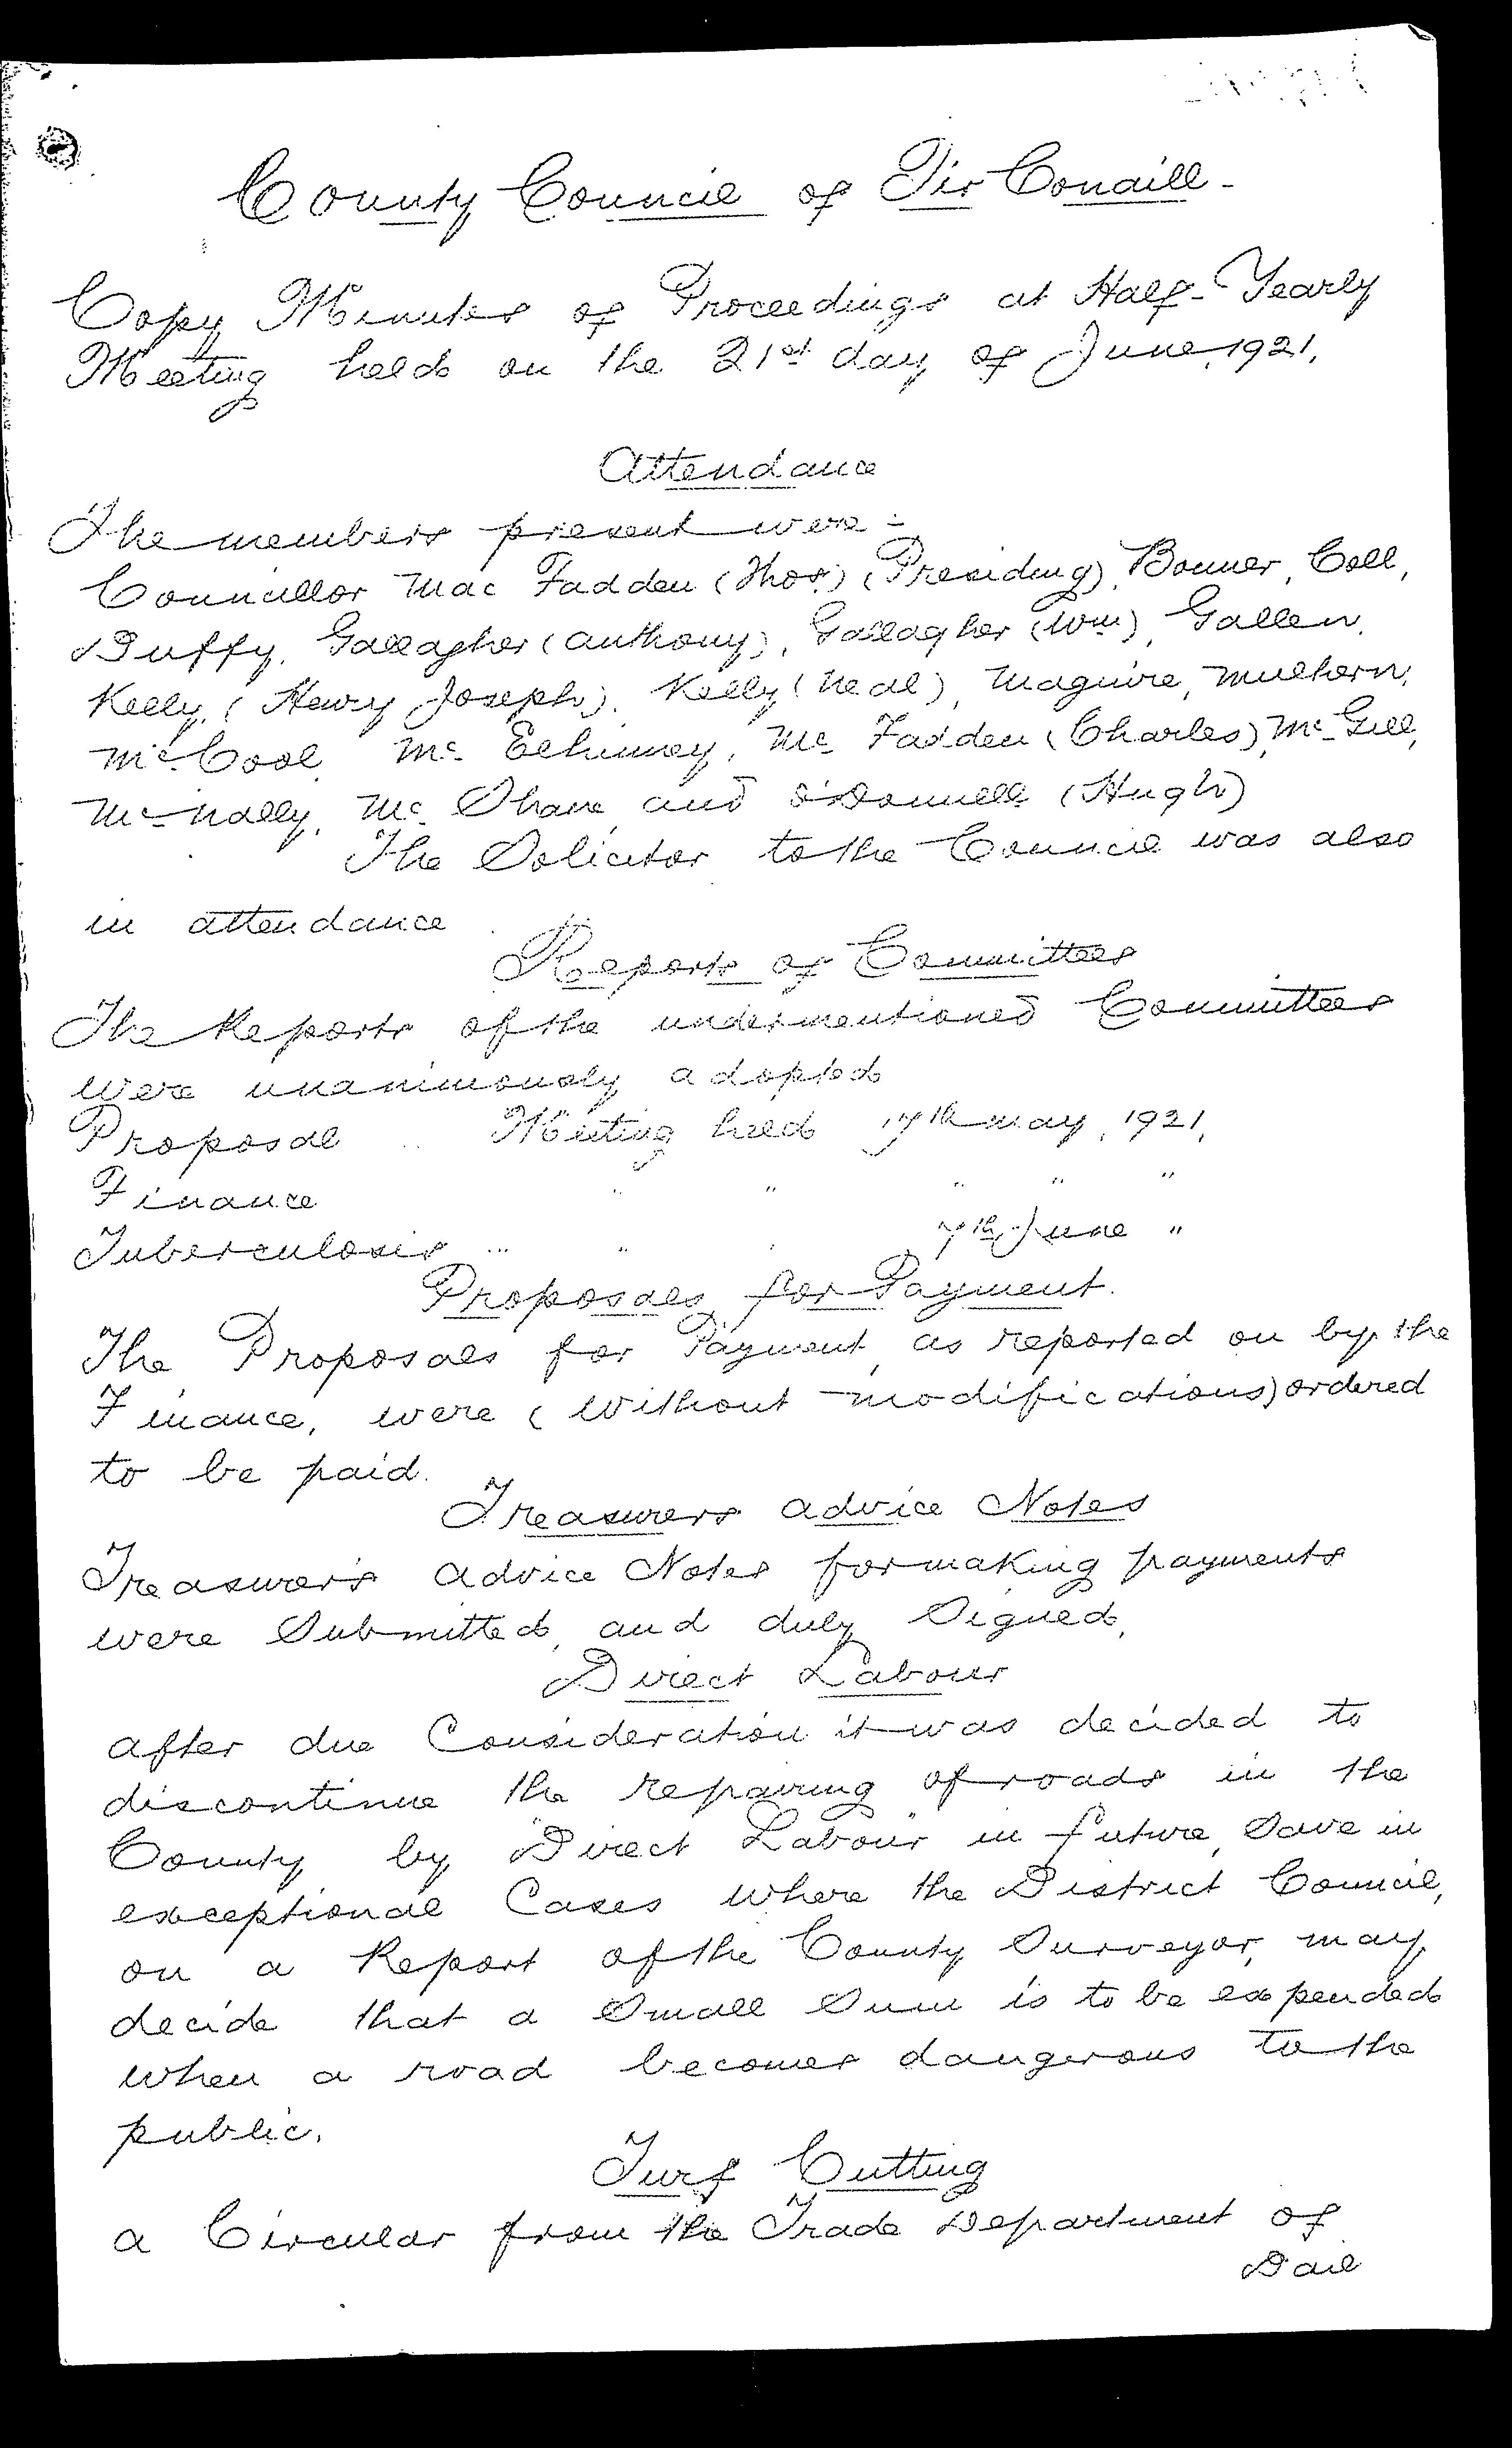 County Council of Tir Conaill -
Copy Minutes of Proceedings at Half-Yearly
Meeting held on the 21st day of June, 1921.
Attendance
The members present were :-
Councillor Mac Fadden (Thos.) (Presiding), Bonner, Coll,
Duffy, Gallagher (Anthony), Gallagher (Wm), Gallen,
Kelly, (Henry Joseph), Kelly (Neal), Maguire, Mulhern,
McCool, Mc Elhinney, Mc Fadden (Charles), McGill,
McNally, Mc Shane, and O'Donnell (Hugh)
The Solicitor to the Council was also
in attendance
Reports of Committees
The Reports of the undermentioned Committees
were unanimously adopted
Proposal .. Meeting held 17th May, 1921,
Finance " " " " "
Tuberculosis .. " " 7th June "
Proposals for Payment.
The Proposals for Payment, as reported on by the
Finance, were (without modifications) ordered
to be paid.
Treasurers Advice Notes
Treasurer's Advice Notes for making payments
were Submitted, and duly Signed,
Direct Labour
After due Consideration it was decided to
discontinue the repairing of roads in the
County by "Direct Labour" in future, Save in
exceptional Cases where the District Council,
on a Report of the County Surveyor, may
decide that a Small Sum is to be expended
when a road becomes dangerous to the
public.
Turf Cutting
A Circular from the Trade Department of
Dail